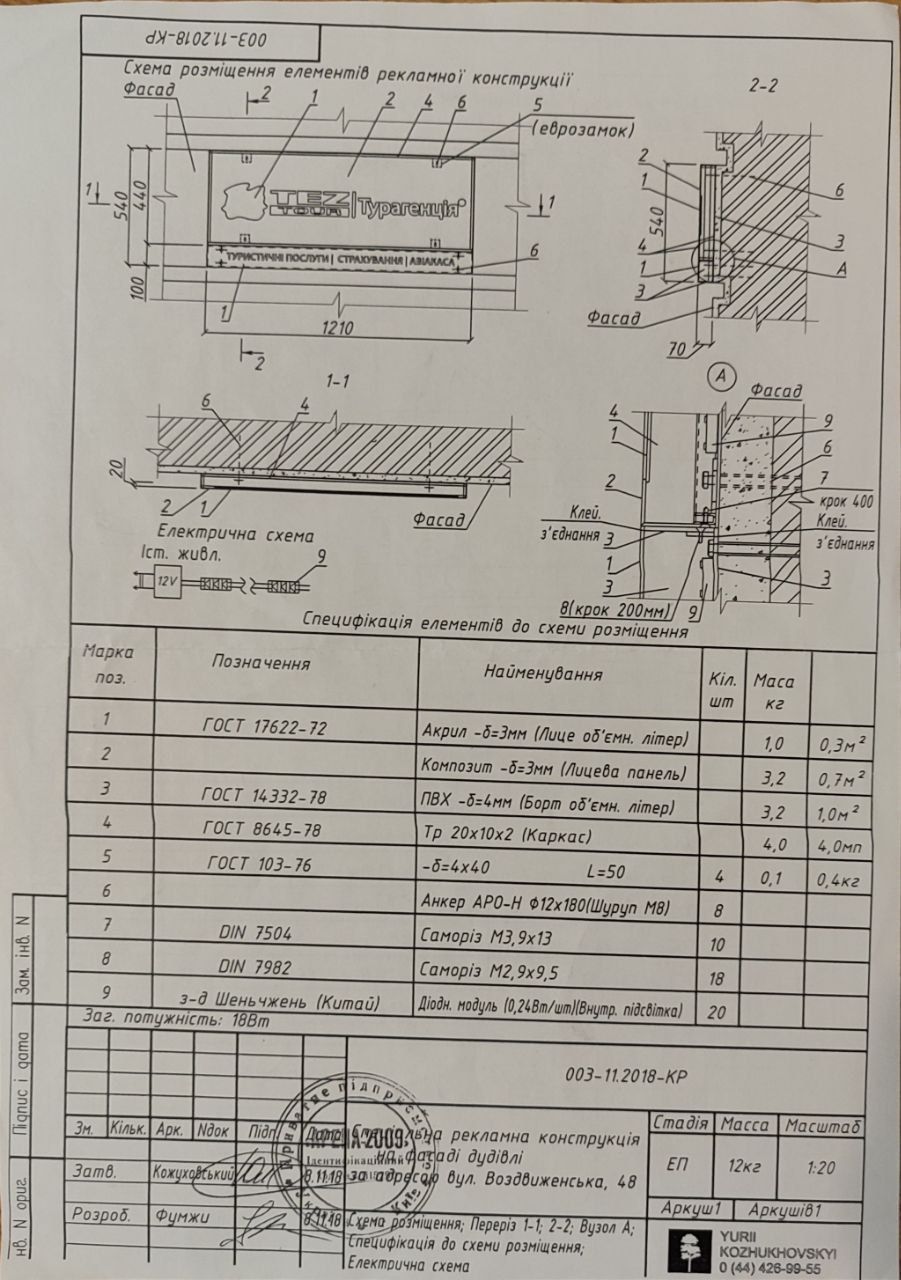 003-11.2018-КР
Схема розміщення елементів рекламної конструкції
Фасад
2
1
2
4
6
5
(еврозамок)
TEZ
TOUR
Турагенція
ТУРИСТИЧНІ ПОСЛУГИ | СТРАХУВАННЯ | АВІАКАСА
1
1
540
440
100
6
1
1210
2
2-2
2
1
540
4
1
3
6
3
А
Фасад
70
1-1
6
4
20
2
1
Фасад
Електрична схема
Іст. живл.
12V
9
А
Фасад
4
1
2
9
6
7
крок 400
Клей.
з'єднання
3
Клей.
з'єднання
1
3
3
8(крок 200мм)
9
Специфікація елементів до схеми розміщення
Марка поз. Позначення Найменування Кіл. шт Маса кг
1 ГОСТ 17622-72 Акрил -δ=3мм (Лице об'ємн. літер) 1,0 0,3м²
2 Композит -δ=3мм (Лицева панель) 3,2 0,7м²
3 ГОСТ 14332-78 ПВХ -δ=4мм (Борт об'ємн. літер) 3,2 1,0м²
4 ГОСТ 8645-78 Тр 20х10х2 (Каркас) 4,0 4,0мп
5 ГОСТ 103-76 -δ=4х40 L=50 4 0,1 0,4кг
6 Анкер АРО-Н Ф12х180(Шуруп М8) 8
7 DIN 7504 Саморіз М3,9х13 10
8 DIN 7982 Саморіз М2,9х9,5 18
9 з-д Шеньчжень (Китай) Діодн. модуль (0,24Вт/шт)(Внутр. підсвітка) 20
Заг. потужність: 18Вт
Зам. інв. N
Підпис і дата
нв. N ориг.
003-11.2018-КР
Зм. Кільк. Арк. Nдок Підп. Дата
Спеціальна рекламна конструкція
на фасаді дудівлі
за адресою вул. Воздвиженська, 48
Стадія Масса Масштаб
ЕП 12кг 1:20
Аркуш1 Аркушів1
Затв. Кожуховський 8.11.18
Розроб. Фумжи 8.11.18
Схема розміщення; Переріз 1-1; 2-2; Вузол А;
Специфікація до схеми розміщення;
Електрична схема
Приватне підприємство
2009
Ідентифікаційний
YURII
KOZHUKHOVSKYI
0 (44) 426-99-55